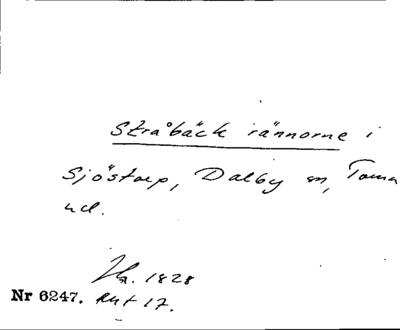 Stråbäck rännorne i
Sjöstorp, Dalby sn, Torna
hd.
Hg. 1828
Nr 6247. Akt 17.